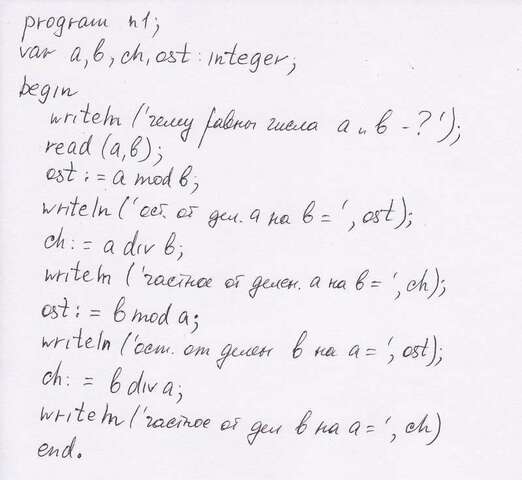 program n1;
var a, b, ch, ost : integer;
begin
writeln ('чему равны числа a и b - ?');
read (a, b);
ost := a mod b;
writeln ('ост. от дел. a на b = ', ost);
ch := a div b;
writeln ('частное от делен. a на b = ', ch);
ost := b mod a;
writeln ('ост. от делен b на a = ', ost);
ch := b div a;
writeln ('частное от дел b на a = ', ch)
end.